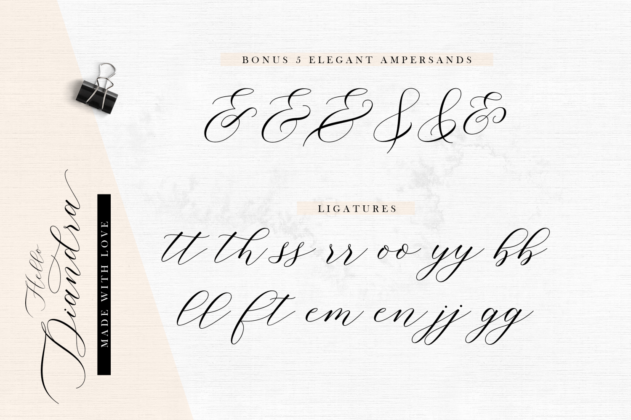 BONUS 5 ELEGANT AMPERSANDS
& & & & & &
LIGATURES
tt th ss rr oo yy bb
ll ft em en jj gg
Hello
Diandra
MADE WITH LOVE